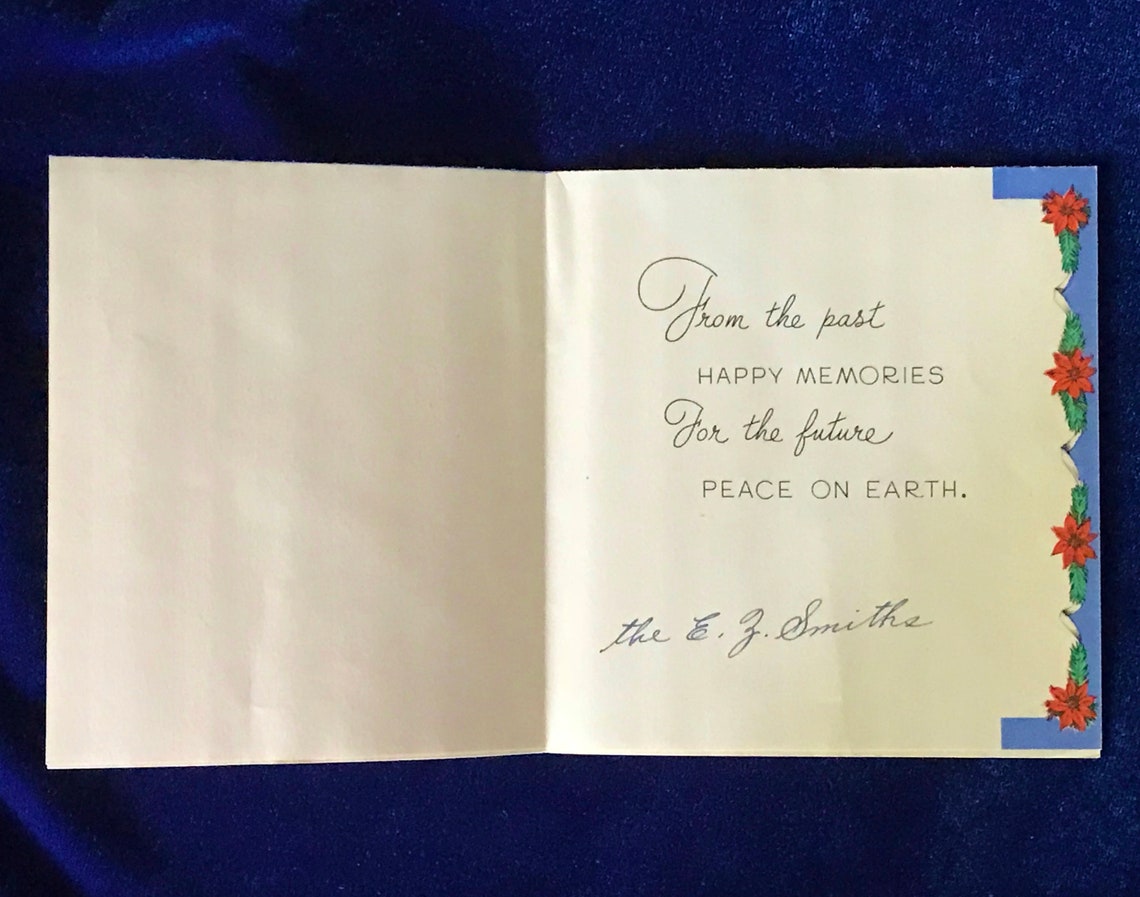 From the past
HAPPY MEMORIES
For the future
PEACE ON EARTH.
the E. Z. Smiths